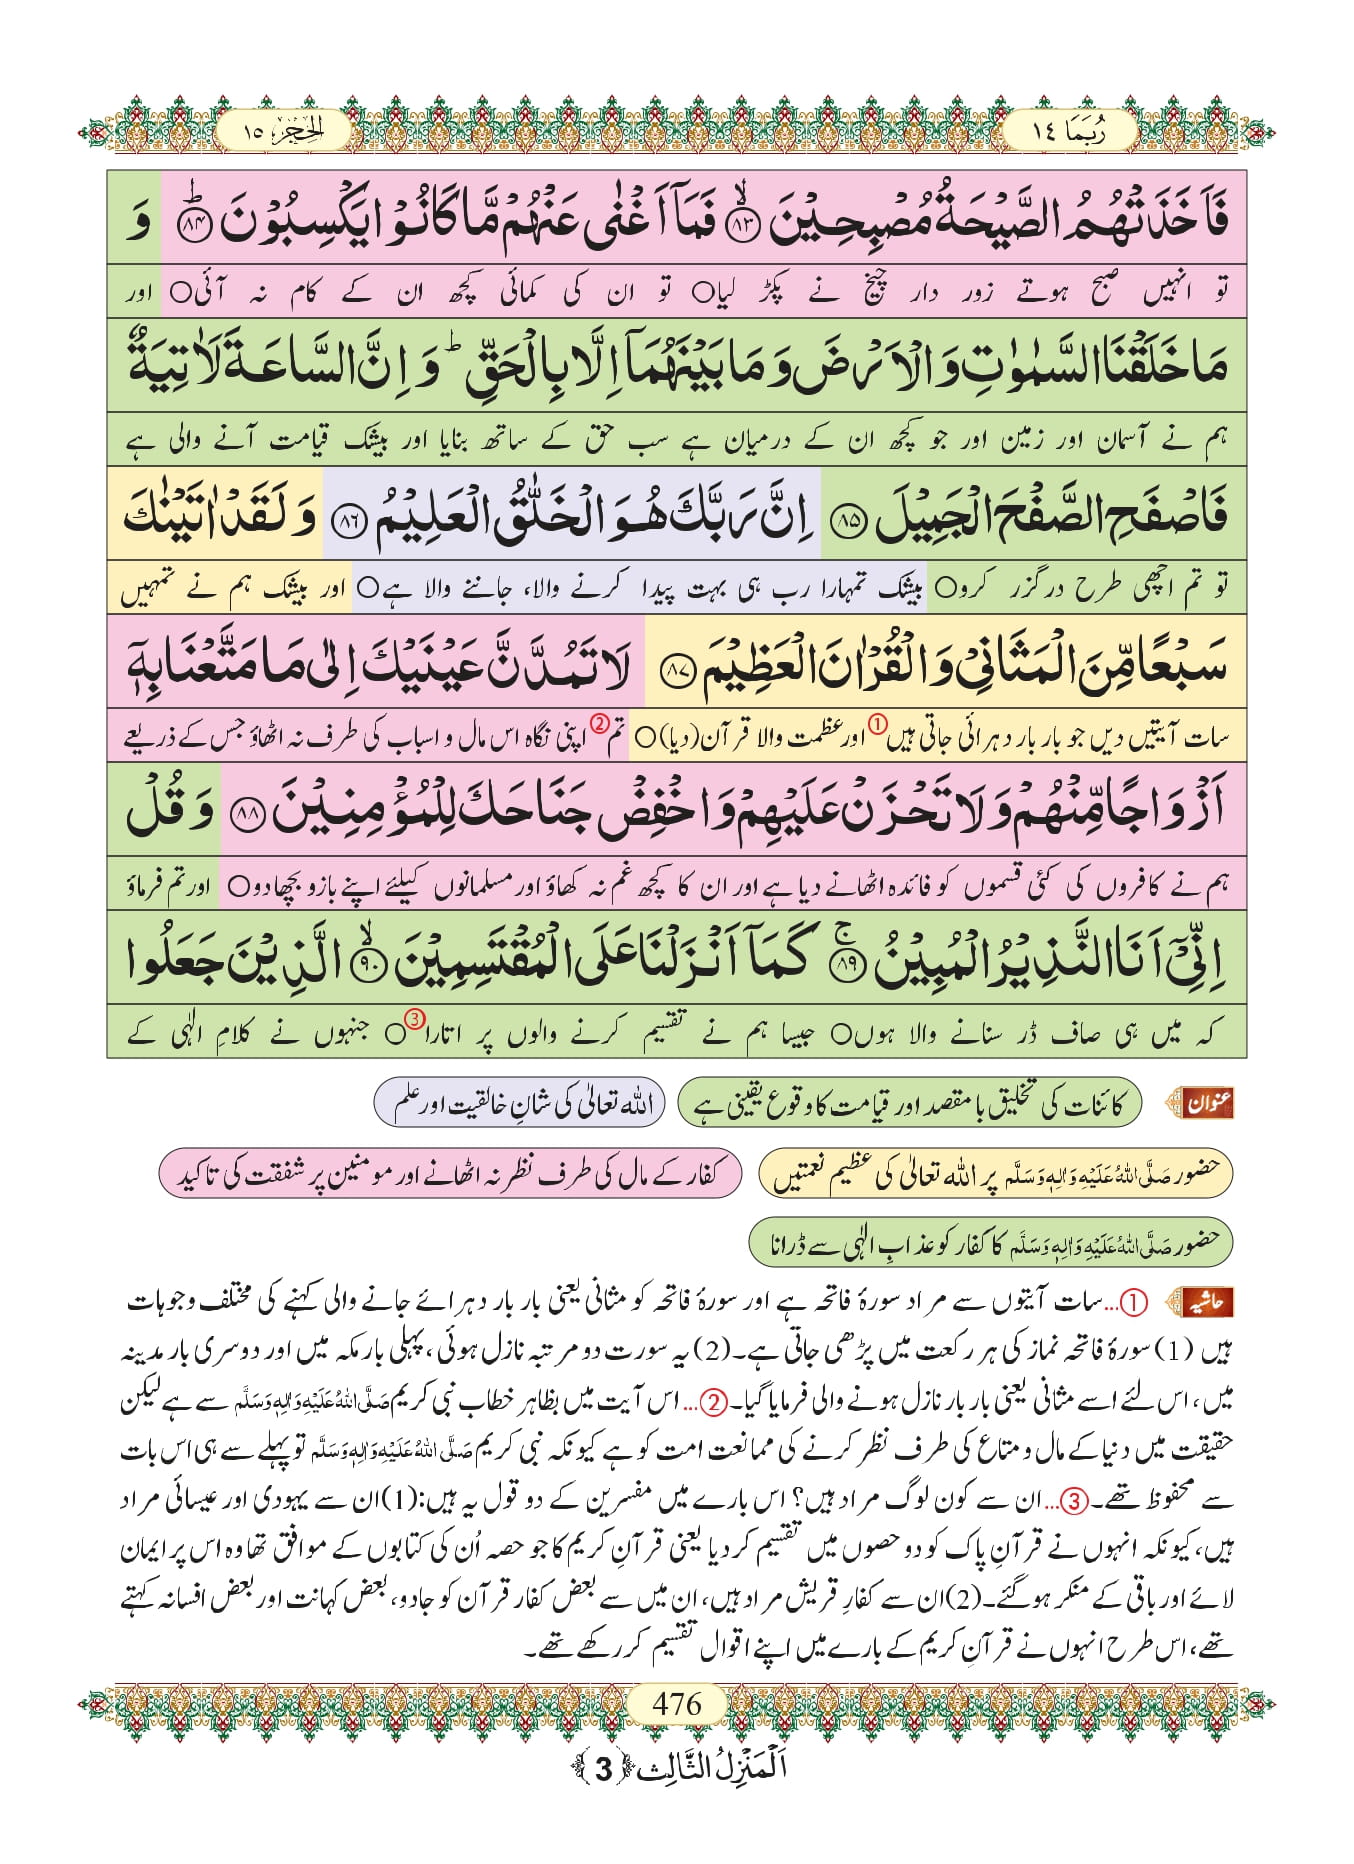 رُبَمَا ١٤
الحِجر ١٥
فَاَخَذَتْهُمُ الصَّیْحَةُ مُصْبِحِیْنَ ﴿۸۳﴾ۙ فَمَاۤ اَغْنٰى عَنْهُمْ مَّا كَانُوْا یَكْسِبُوْنَ ﴿۸۴﴾ؕ وَ
تو انہیں صبح ہوتے زور دار چیخ نے پکڑ لیا○ تو ان کی کمائی کچھ ان کے کام نہ آئی○ اور
مَا خَلَقْنَا السَّمٰوٰتِ وَ الْاَرْضَ وَ مَا بَیْنَهُمَاۤ اِلَّا بِالْحَقِّ ؕ وَ اِنَّ السَّاعَةَ لَاٰتِیَةٌ
ہم نے آسمان اور زمین اور جو کچھ ان کے درمیان ہے سب حق کے ساتھ بنایا اور بیشک قیامت آنے والی ہے
فَاصْفَحِ الصَّفْحَ الْجَمِیْلَ ﴿۸۵﴾ اِنَّ رَبَّكَ هُوَ الْخَلّٰقُ الْعَلِیْمُ ﴿۸۶﴾ وَ لَقَدْ اٰتَیْنٰكَ
تو تم اچھی طرح درگزر کرو○ بیشک تمہارا رب ہی بہت پیدا کرنے والا، جاننے والا ہے○ اور بیشک ہم نے تمہیں
سَبْعًا مِّنَ الْمَثَانِیْ وَ الْقُرْاٰنَ الْعَظِیْمَ ﴿۸۷﴾ لَا تَمُدَّنَّ عَیْنَیْكَ اِلٰى مَا مَتَّعْنَا بِهٖۤ
سات آیتیں دیں جو بار بار دہرائی جاتی ہیں① اور عظمت والا قرآن (دیا)○ تم② اپنی نگاہ اس مال و اسباب کی طرف نہ اٹھاؤ جس کے ذریعے
اَزْوَاجًا مِّنْهُمْ وَ لَا تَحْزَنْ عَلَیْهِمْ وَ اخْفِضْ جَنَاحَكَ لِلْمُؤْمِنِیْنَ ﴿۸۸﴾ وَ قُلْ
ہم نے کافروں کی کئی قسموں کو فائدہ اٹھانے دیا ہے اور ان کا کچھ غم نہ کھاؤ اور مسلمانوں کیلئے اپنے بازو بچھا دو○ اور تم فرماؤ
اِنِّیْۤ اَنَا النَّذِیْرُ الْمُبِیْنُ ﴿۸۹﴾ۚ كَمَاۤ اَنْزَلْنَا عَلَى الْمُقْتَسِمِیْنَ ﴿۹۰﴾ۙ الَّذِیْنَ جَعَلُوا
کہ میں ہی صاف ڈر سنانے والا ہوں○ جیسا ہم نے تقسیم کرنے والوں پر اتارا③○ جنہوں نے کلامِ الٰہی کے
عنوان کائنات کی تخلیق بامقصد اور قیامت کا وقوع یقینی ہے اللہ تعالیٰ کی شانِ خالقیت اور علم
حضور صَلَّی اللہُ عَلَیْہِ وَاٰلِہٖ وَسَلَّم پر اللہ تعالیٰ کی عظیم نعمتیں کفار کے مال کی طرف نظر نہ اٹھانے اور مومنین پر شفقت کی تاکید
حضور صَلَّی اللہُ عَلَیْہِ وَاٰلِہٖ وَسَلَّم کا کفار کو عذابِ الٰہی سے ڈرانا
حاشیہ ①...سات آیتوں سے مراد سورۂ فاتحہ ہے اور سورۂ فاتحہ کو مثانی یعنی بار بار دہرائے جانے والی کہنے کی مختلف وجوہات
ہیں (1) سورۂ فاتحہ نماز کی ہر رکعت میں پڑھی جاتی ہے۔ (2) یہ سورت دو مرتبہ نازل ہوئی، پہلی بار مکہ میں اور دوسری بار مدینہ
میں، اس لئے اسے مثانی یعنی بار بار نازل ہونے والی فرمایا گیا۔ ②...اس آیت میں بظاہر خطاب نبی کریم صَلَّی اللہُ عَلَیْہِ وَاٰلِہٖ وَسَلَّم سے ہے لیکن
حقیقت میں دنیا کے مال و متاع کی طرف نظر کرنے کی ممانعت امت کو ہے کیونکہ نبی کریم صَلَّی اللہُ عَلَیْہِ وَاٰلِہٖ وَسَلَّم تو پہلے سے ہی اس بات
سے محفوظ تھے۔ ③...ان سے کون لوگ مراد ہیں؟ اس بارے میں مفسرین کے دو قول یہ ہیں: (1) ان سے یہودی اور عیسائی مراد
ہیں، کیونکہ انہوں نے قرآنِ پاک کو دو حصوں میں تقسیم کر دیا یعنی قرآنِ کریم کا جو حصہ اُن کی کتابوں کے موافق تھا وہ اس پر ایمان
لائے اور باقی کے منکر ہوگئے۔ (2) ان سے کفارِ قریش مراد ہیں، ان میں سے بعض کفار قرآن کو جادو، بعض کہانت اور بعض افسانہ کہتے
تھے، اس طرح انہوں نے قرآنِ کریم کے بارے میں اپنے اقوال تقسیم کر رکھے تھے۔
476
اَلْمَنْزِلُ الثَّالِث ﴿3﴾